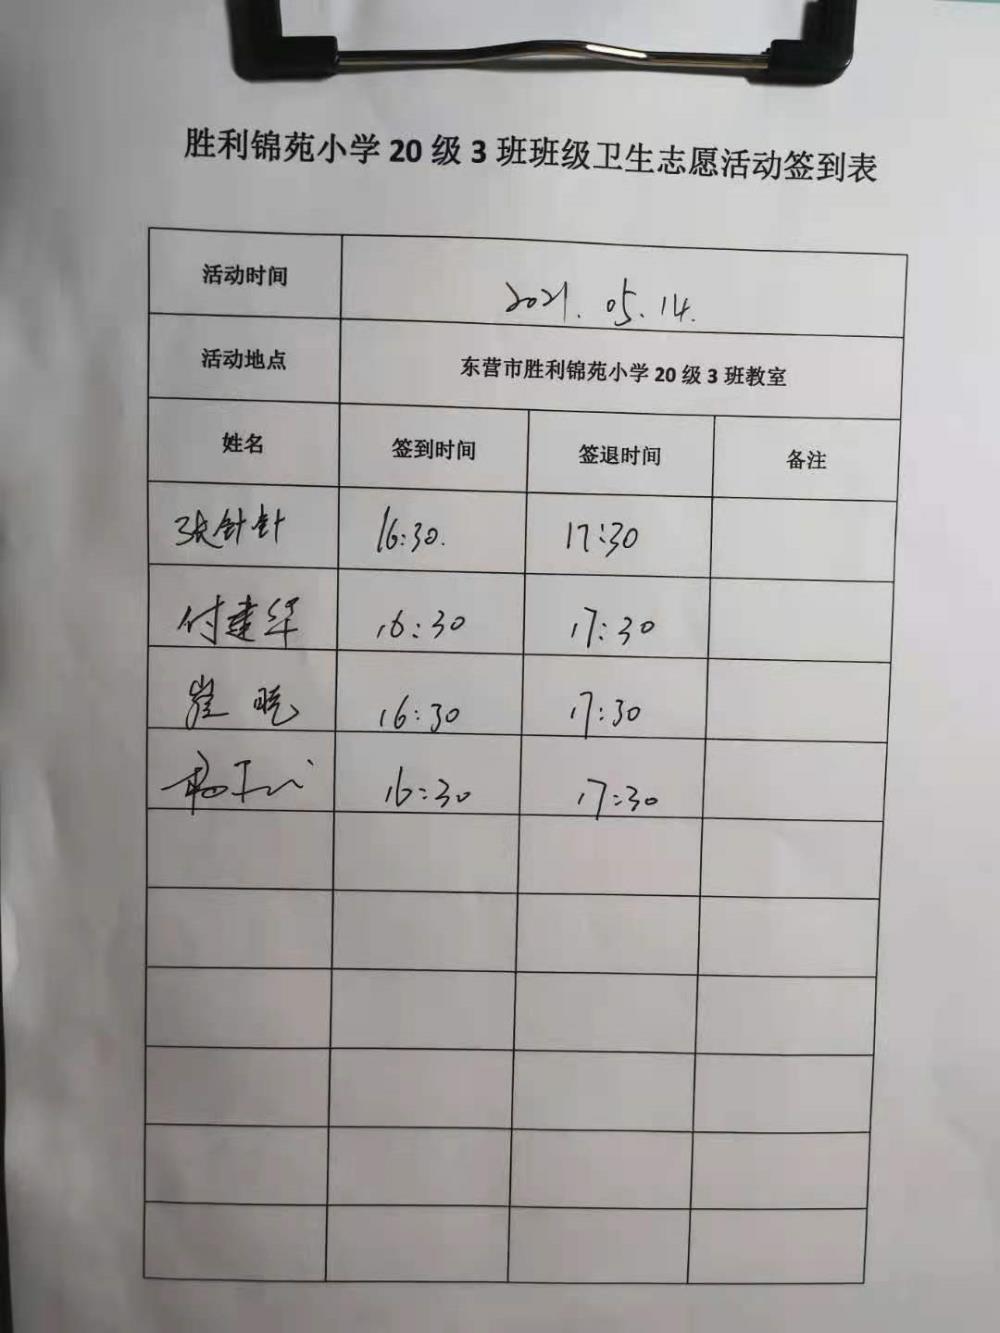 胜利锦苑小学20级3班班级卫生志愿活动签到表
活动时间 2021.05.14.
活动地点 东营市胜利锦苑小学20级3班教室
姓名 签到时间 签退时间 备注
张针针 16:30. 17:30
付建华 16:30 17:30
崔晓 16:30 17:30
16:30 17:30